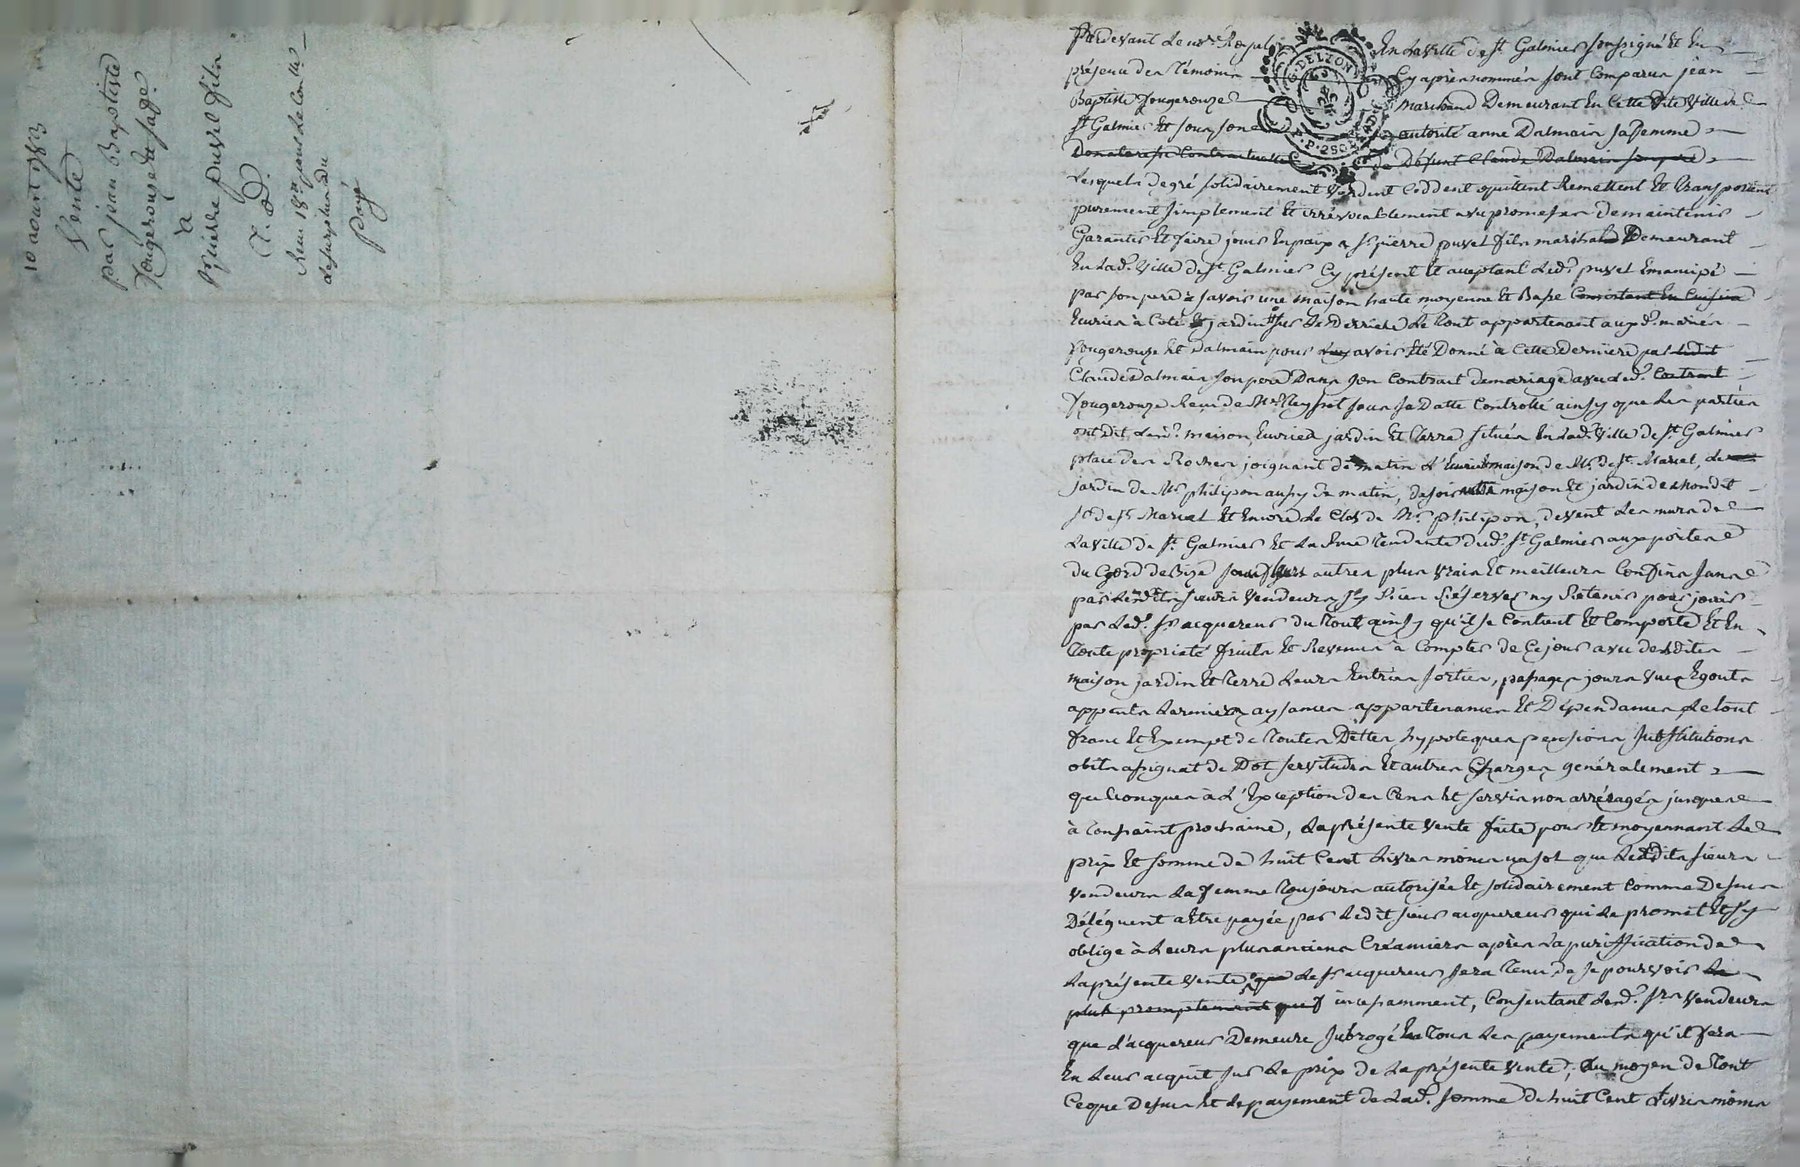 10 aoust 1783
Vente
par jean Baptiste
Fougerouze du sage.
à
Pierre puvel fils
Reçu pour le
Payé
G. DELZONS
Pardevant Le nre Royal En La ville de St. Galmier soussigné Et En
présence des Témoins Cy après nommés sont Comparus jean
Baptiste Fougerouze marchand Demeurant En Cette dite ville de
St Galmier Et sous son autorité anne Dalmais sa femme
Donataresse Contractuelle de Défunt Claude Dalmais son pere
Lesquels de gré solidairement Vendent Cèddent quittent Remettent Et transportent
purement simplement Et irrévocablement avec promesse de maintenir
Garantir Et faire jouir En paix a Sr. pierre puvel fils marchand Demeurant
En Lad. Ville de St Galmier Cy présent Et acceptant Led. puvel Emancipé
par son pere à savoir une maison haute moyenne Et Basse Consistant En Cuisine
Ecurie à Coté Et jardin sur Le Derriere Le tout appartenant auxd. mariés
Fougerouze Et Dalmais pour avoir Eté Donné à Cette derniere par ledit
Claude Dalmais son pere Dans son Contrait de mariage avec led. Contrait
Fougerouze Reçu de Me sous sa Datte Controllé ainsy que Les parties
ont Dit Lesd. maison Ecurie jardin Et terre situés En Lad. Ville de St. Galmier
place des Roches joignant de matin L'Ecurie maison de Mr. de St. Marcel, de
jardin de Mr philipon aussy de matin, de soir autre maison Et jardin de mondit
Sr de St Marcel Et Encore Le Clos de Mr. philipon, de vent Les murs de
La ville de St. Galmier Et La Rue Tendente dud. St Galmier aux portes
du de Bize sauf Leurs autres plus vrais Et meilleurs Confins sans
par Lesdits sieurs Vendeurs s'y Rien Réserver ny Retenir pour jouir
par Led. Sr acquereur du tout ainsy qu'il se Contient Et Comporte Et En
Toute propriété fruits Et Revenus à Compter de Ce jour avec desdites
maison jardin Et terre Leurs Entrées sorties, passages jours vues Egouts
appents Larmiers aysances appartenances Et Dépendances Le tout
franc Et Exempt de toutes Dettes hypoteques pensions substitutions
obits assignat de Dot servitudes Et autres Charges généralement
quelconques à L'Exception des Cens Et servis non arréragés jusques
à toussaint prochaine, La présente Vente faite pour Et moyennant Le
prix Et somme de huit Cent Livres que Lesdits sieurs
Vendeurs La femme toujours autorisée Et solidairement Comme Dessus
Déléguent a Etre payée par Ledit sieur acquereur qui Le promet Et s'y
oblige à Leurs plus anciens Créanciers après La puriffication de
La présente Vente que Le Sr. acquereur sera Tenu de se pourvoir Le
plus promptement que incessamment, Consentant Lesd. Srs Vendeurs
que L'acquereur Demeure subrogé En Tous Les payements qu'il fera
En Leur acquit sur Le prix de La présente Vente, Au moyen de Tout
Ce que Dessus Et Le payement de Lad. somme de huit Cent Livres moins